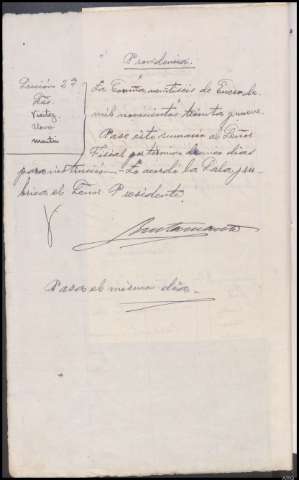 Providencia
Sección 2ª
Sres.
Vieitez
Novo
Martin
La Coruña veintiseis de Enero de
mil novecientos treinta y nueve.
Pase este sumario al Señor
Fiscal por termino de seis dias
para instrucción.- Lo acordó la Sala y ru-
brica el Señor Presidente.
Pasa el mismo dia.-